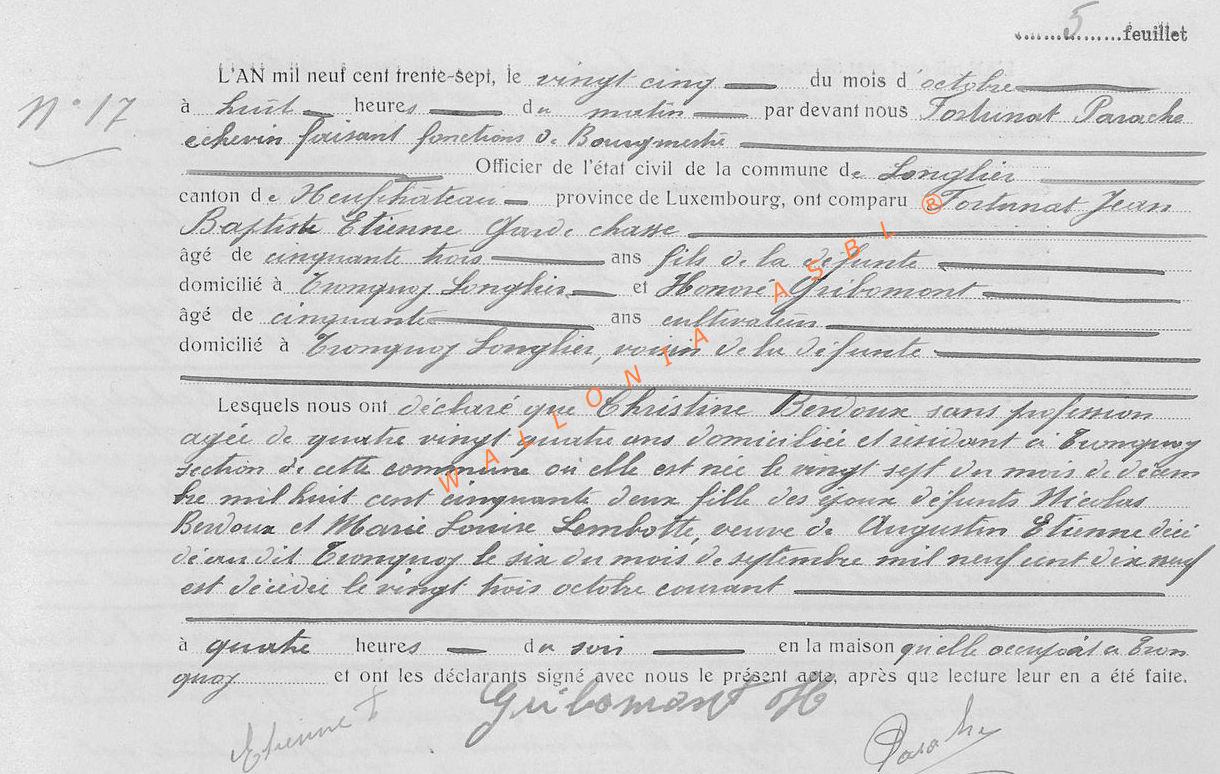 5 feuillet
L'AN mil neuf cent trente-sept, le vingt cinq du mois d'octobre
N° 17
à huit heures du matin par devant nous Fortunat Parache
echevin faisant fonctions de Bourgmestre
Officier de l'état civil de la commune de Longlier
canton de Neufchâteau province de Luxembourg, ont comparu Fortunat Jean
Baptiste Etienne Garde chasse
âgé de cinquante trois ans fils de la défunte
domicilié à Tronquoy Longlier et Honoré Gribomont
âgé de cinquante ans cultivateur
domicilié à Tronquoy Longlier, voisin de la défunte
Lesquels nous ont déclaré que Christine Berdoux sans profession
agée de quatre vingt quatre ans domiciliée et résidant à Tronquoy
section de cette commune où elle est née le vingt sept du mois de décem
bre mil huit cent cinquante deux fille des époux défunts Nicolas
Berdoux et Marie Louise Lambotte, veuve de Augustin Etienne décé
dé au dit Tronquoy le six du mois de septembre mil neuf cent dix neuf
est décédée le vingt trois octobre courant
à quatre heures du soir en la maison qu'elle occupait à Tron
quoy et ont les déclarants signé avec nous le présent acte, après que lecture leur en a été faite.
Etienne F
Gribomont H
Parache
WALLONIA ASBL ®